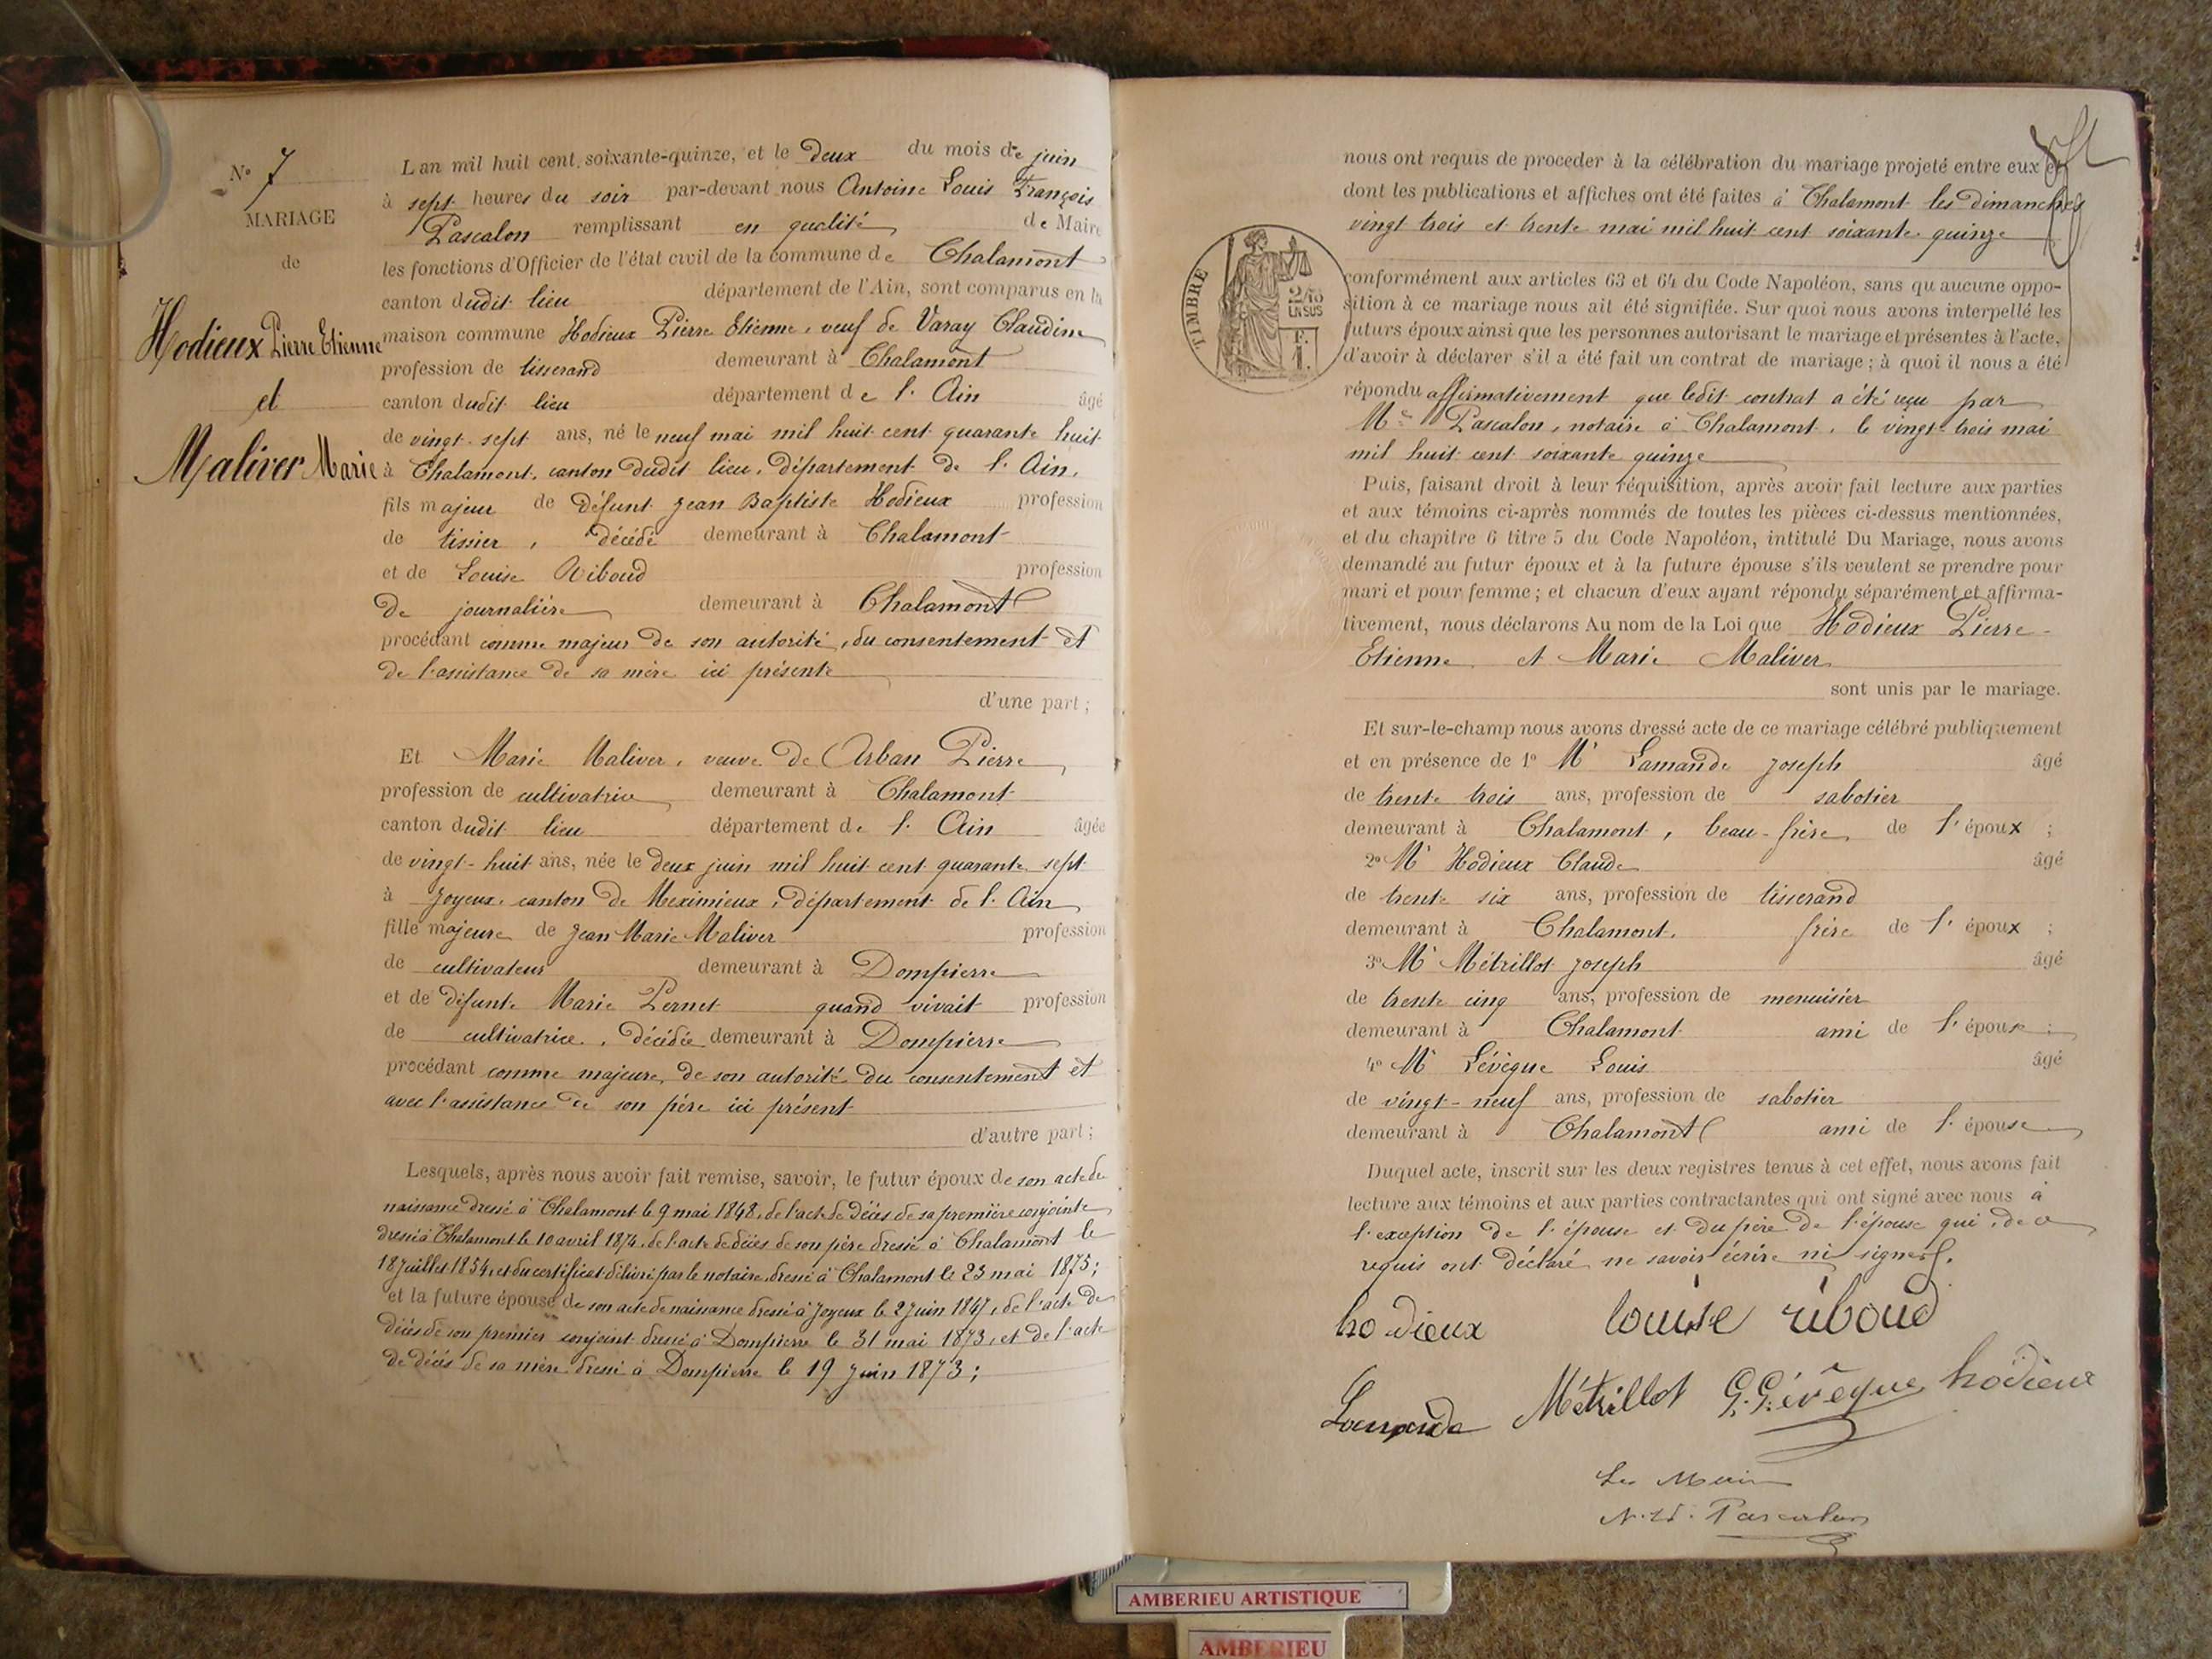 N° 7
MARIAGE
de
Hodieux Pierre Etienne
et
Maliver Marie
L'an mil huit cent soixante-quinze, et le deux du mois de juin
à sept heures du soir par-devant nous Antoine Louis François
Pascalon remplissant en qualité de Maire
les fonctions d'Officier de l'état civil de la commune de Chalamont
canton dudit lieu département de l'Ain, sont comparus en la
maison commune Hodieux Pierre Etienne, veuf de Varay Claudine
profession de tisserand demeurant à Chalamont
canton dudit lieu département de l'Ain âgé
de vingt-sept ans, né le neuf mai mil huit cent quarante huit
à Chalamont, canton dudit lieu, département de l'Ain,
fils majeur de défunt Jean Baptiste Hodieux profession
de tissier, décédé demeurant à Chalamont
et de Louise Riboud profession
de journalière demeurant à Chalamont
procédant comme majeur de son autorité, du consentement et
de l'assistance de sa mère ici présente
d'une part;
Et Marie Maliver, veuve de Arban Pierre
profession de cultivatrice demeurant à Chalamont
canton dudit lieu département de l'Ain âgée
de vingt-huit ans, née le deux juin mil huit cent quarante sept
à Joyeux, canton de Meximieux, département de l'Ain
fille majeure de Jean Marie Maliver profession
de cultivateur demeurant à Dompierre
et de défunte Marie Pernet quand vivait profession
de cultivatrice, décédée demeurant à Dompierre
procédant comme majeure, de son autorité du consentement et
avec l'assistance de son père ici présent
d'autre part;
Lesquels, après nous avoir fait remise, savoir, le futur époux de son acte de
naissance dressé à Chalamont le 9 mai 1848, de l'acte de décès de sa première conjointe
dressé à Chalamont le 10 avril 1874, de l'acte de décès de son père dressé à Chalamont le
18 juillet 1854, et du certificat délivré par le notaire, dressé à Chalamont le 23 mai 1875;
et la future épouse de son acte de naissance dressé à Joyeux le 2 juin 1847, de l'acte de
décès de son premier conjoint dressé à Dompierre le 31 mai 1873, et de l'acte
de décès de sa mère dressé à Dompierre le 19 Juin 1873;
TIMBRE
2/10
EN SUS
F.
1.
nous ont requis de procéder à la célébration du mariage projeté entre eux et
dont les publications et affiches ont été faites à Chalamont les dimanches
vingt trois et trente mai mil huit cent soixante quinze
conformément aux articles 63 et 64 du Code Napoléon, sans qu'aucune oppo-
sition à ce mariage nous ait été signifiée. Sur quoi nous avons interpellé les
futurs époux ainsi que les personnes autorisant le mariage et présentes à l'acte,
d'avoir à déclarer s'il a été fait un contrat de mariage; à quoi il nous a été
répondu affirmativement que ledit contrat a été reçu par
Me Pascalon, notaire à Chalamont, le vingt-trois mai
mil huit cent soixante quinze
Puis, faisant droit à leur réquisition, après avoir fait lecture aux parties
et aux témoins ci-après nommés de toutes les pièces ci-dessus mentionnées,
et du chapitre 6 titre 5 du Code Napoléon, intitulé Du Mariage, nous avons
demandé au futur époux et à la future épouse s'ils veulent se prendre pour
mari et pour femme; et chacun d'eux ayant répondu séparément et affirma-
tivement, nous déclarons Au nom de la Loi que Hodieux Pierre-
Etienne et Marie Maliver
sont unis par le mariage.
Et sur-le-champ nous avons dressé acte de ce mariage célébré publiquement
et en présence de 1° Mr Lamande Joseph âgé
de trente trois ans, profession de sabotier
demeurant à Chalamont, beau-frère de l'époux;
2° Mr Hodieux Claude âgé
de trente six ans, profession de tisserand
demeurant à Chalamont, frère de l'époux;
3° Mr Métrillot Joseph âgé
de trente cinq ans, profession de menuisier
demeurant à Chalamont ami de l'épouse;
4° Mr Lévêque Louis âgé
de vingt-neuf ans, profession de sabotier
demeurant à Chalamont ami de l'épouse
Duquel acte, inscrit sur les deux registres tenus à cet effet, nous avons fait
lecture aux témoins et aux parties contractantes qui ont signé avec nous à
l'exception de l'épouse et du père de l'épouse qui, de ce
requis ont déclaré ne savoir écrire ni signer.
hodieux louise riboud
Lamande Métrillot Lévêque hodieux
Le Maire
Pascalon
AMBERIEU ARTISTIQUE
AMBERIEU